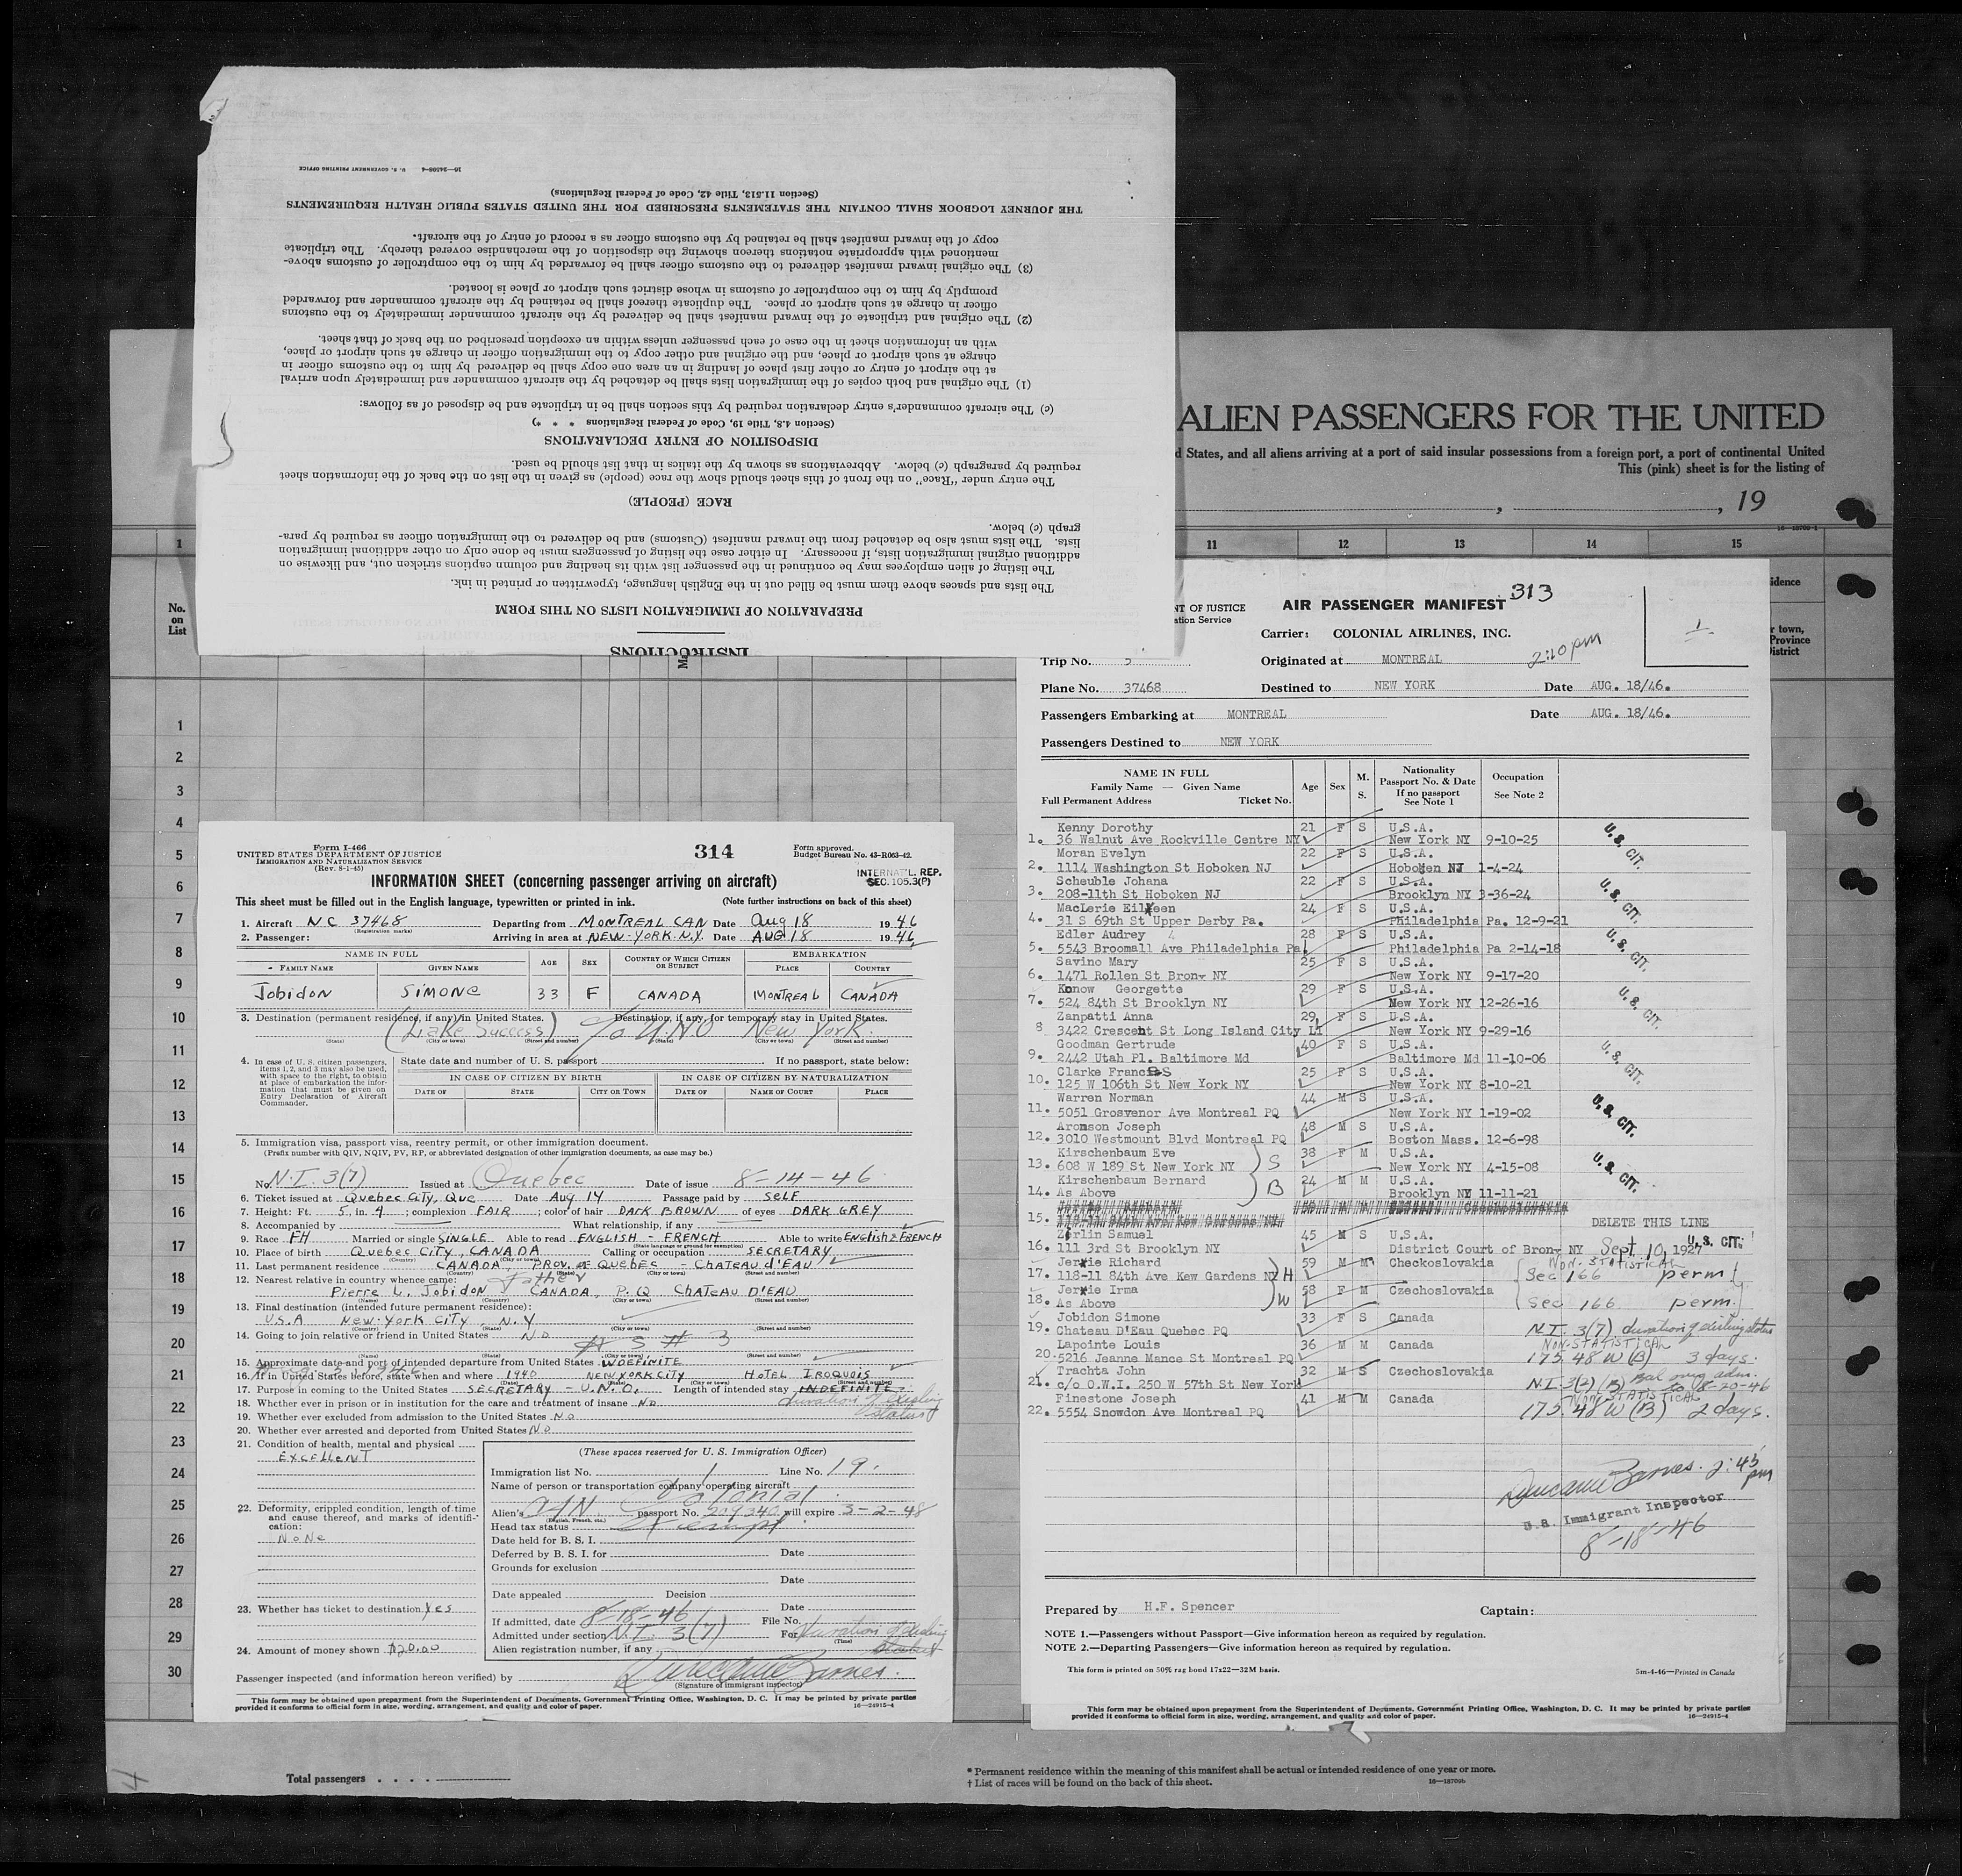 INSTRUCTIONS
PREPARATION OF IMMIGRATION LISTS ON THIS FORM
The lists and spaces above them must be filled out in the English language, typewritten or printed in ink.
The listing of alien employees may be continued in the passenger list with its heading and column captions stricken out, and likewise on
additional original immigration lists, if necessary. In either case the listing of passengers must be done only on other additional immigration
lists. The lists must also be detached from the inward manifest (Customs) and be delivered to the immigration officer as required by para-
graph (c) below.
RACE (PEOPLE)
The entry under "Race" on the front of this sheet should show the race (people) as given in the list on the back of the information sheet
required by paragraph (c) below. Abbreviations as shown by the italics in that list should be used.
DISPOSITION OF ENTRY DECLARATIONS
(Section 4.8, Title 19, Code of Federal Regulations * * *)
(c) The aircraft commander's entry declaration required by this section shall be in triplicate and be disposed of as follows:
(1) The original and both copies of the immigration lists shall be detached by the aircraft commander and immediately upon arrival
at the airport of entry or other first place of landing in an area one copy shall be delivered by him to the customs officer in
charge at such airport or place, and the original and other copy to the immigration officer in charge at such airport or place,
with an information sheet in the case of each passenger unless within an exception prescribed on the back of that sheet.
(2) The original and triplicate of the inward manifest shall be delivered by the aircraft commander immediately to the customs
officer in charge at such airport or place. The duplicate thereof shall be retained by the aircraft commander and forwarded
promptly by him to the comptroller of customs in whose district such airport or place is located.
(3) The original inward manifest delivered to the customs officer shall be forwarded by him to the comptroller of customs above-
mentioned with appropriate notations thereon showing the disposition of the merchandise covered thereby. The triplicate
copy of the inward manifest shall be retained by the customs officer as a record of entry of the aircraft.
THE JOURNEY LOGBOOK SHALL CONTAIN THE STATEMENTS PRESCRIBED FOR THE UNITED STATES PUBLIC HEALTH REQUIREMENTS
(Section 11.513, Title 42, Code of Federal Regulations)
16—24508-4 U. S. GOVERNMENT PRINTING OFFICE
ALIEN PASSENGERS FOR THE UNITED
d States, and all aliens arriving at a port of said insular possessions from a foreign port, a port of continental United
This (pink) sheet is for the listing of
, , 19
1 11 12 13 14 15
No. on List
idence
r town,
Province
District
1
2
3
4
5
6
7
8
9
10
11
12
13
14
15
16
17
18
19
20
21
22
23
24
25
26
27
28
29
30
Form I-466
UNITED STATES DEPARTMENT OF JUSTICE
IMMIGRATION AND NATURALIZATION SERVICE
(Rev. 8-1-45)
314
Form approved.
Budget Bureau No. 43-R063-42.
INTERNAT'L. REP.
SEC. 105.3(P)
INFORMATION SHEET (concerning passenger arriving on aircraft)
This sheet must be filled out in the English language, typewritten or printed in ink. (Note further instructions on back of this sheet)
1. Aircraft NC 37468 Departing from MONTREAL CAN Date Aug 18 1946
(Registration marks)
2. Passenger: Arriving in area at NEW-YORK N.Y. Date AUG 18 1946
NAME IN FULL AGE SEX COUNTRY OF WHICH CITIZEN OR SUBJECT EMBARKATION
FAMILY NAME GIVEN NAME PLACE COUNTRY
Jobidon SIMONe 33 F CANADA MONTREAL CANADA
3. Destination (permanent residence, if any) in United States. Destination, if any, for temporary stay in United States.
(Lake Success) c/o U.N.O New York.
(State) (City or town) (Street and number) (State) (City or town) (Street and number)
4. In case of U. S. citizen passengers, items 1, 2, and 3 may also be used, with space to the right, to obtain at place of embarkation the information that must be given on Entry Declaration of Aircraft Commander.
State date and number of U. S. passport If no passport, state below:
IN CASE OF CITIZEN BY BIRTH IN CASE OF CITIZEN BY NATURALIZATION
DATE OF STATE CITY OR TOWN DATE OF NAME OF COURT PLACE
5. Immigration visa, passport visa, reentry permit, or other immigration document.
(Prefix number with QIV, NQIV, PV, RP, or abbreviated designation of other immigration documents, as case may be.)
No. N.I. 3(7) Issued at Quebec Date of issue 8-14-46
6. Ticket issued at Quebec City, Que Date Aug 14 Passage paid by SELF
7. Height: Ft. 5, in. 4; complexion FAIR; color of hair DARK BROWN of eyes DARK GREY
8. Accompanied by What relationship, if any
9. Race FH Married or single SINGLE Able to read ENGLISH - FRENCH Able to write ENGLISH & FRENCH
(State language or ground for exemption)
10. Place of birth Quebec City, CANADA Calling or occupation SECRETARY
(Country) (City or town)
11. Last permanent residence CANADA, PROV. of QUEBEC - CHATEAU d'EAU
(Country) (State) (City or town) (Street and number)
12. Nearest relative in country whence came: Father
Pierre L. Jobidon CANADA, P.Q CHATEAU D'EAU
(Name) (Country) (City or town) (Street and number)
13. Final destination (intended future permanent residence):
U.S.A NEW-YORK CITY N.Y
(Country) (State) (City or town) (Street and number)
14. Going to join relative or friend in United States No
(Name) (State) (City or town) (Street and number)
15. Approximate date and port of intended departure from United States INDEFINITE
16. If in United States before, state when and where 1940 NEW YORK CITY HOTEL IROQUOIS
(Date) (State) (City or town) (Street and number)
17. Purpose in coming to the United States SECRETARY - U.N.O. Length of intended stay INDEFINITE
duration of existing status
18. Whether ever in prison or in institution for the care and treatment of insane No
19. Whether ever excluded from admission to the United States No
20. Whether ever arrested and deported from United States No
21. Condition of health, mental and physical
EXCELLENT
22. Deformity, crippled condition, length of time and cause thereof, and marks of identification:
NONE
23. Whether has ticket to destination Yes
24. Amount of money shown $20.00
(These spaces reserved for U. S. Immigration Officer)
Immigration list No. 1 Line No. 19.
Name of person or transportation company operating aircraft
Colonial
Alien's passport No. will expire 3-2-48
(English, French, etc.)
Head tax status Exempt
Date held for B. S. I.
Deferred by B. S. I. for Date
Grounds for exclusion
Date
Date appealed Decision
Date
If admitted, date 8-18-46 File No.
Admitted under section N.I. 3(7) For duration of existing status
(Time)
Alien registration number, if any
Passenger inspected (and information hereon verified) by
(Signature of immigrant inspector)
This form may be obtained upon prepayment from the Superintendent of Documents, Government Printing Office, Washington, D. C. It may be printed by private parties
provided it conforms to official form in size, wording, arrangement, and quality and color of paper. 16—24915-4
NT OF JUSTICE
ation Service
AIR PASSENGER MANIFEST 313
Carrier: COLONIAL AIRLINES, INC.
1
Trip No. 5 Originated at MONTREAL 2:10 pm
Plane No. 37468 Destined to NEW YORK Date AUG. 18/46.
Passengers Embarking at MONTREAL Date AUG. 18/46.
Passengers Destined to NEW YORK
NAME IN FULL
Family Name — Given Name
Full Permanent Address Ticket No.
Age Sex M. S.
Nationality
Passport No. & Date
If no passport
See Note 1
Occupation
See Note 2
Kenny Dorothy 21 F S U.S.A.
1. 36 Walnut Ave Rockville Centre NY New York NY 9-10-25 U.S. CIT.
Moran Evelyn 22 F S U.S.A.
2. 1114 Washington St Hoboken NJ Hoboken NJ 1-4-24
Scheuble Johana 22 F S U.S.A.
3. 208-11th St Hoboken NJ Brooklyn NY 3-36-24 U.S. CIT.
MacLerie Eileen 24 F S U.S.A.
4. 31 S 69th St Upper Derby Pa. Philadelphia Pa. 12-9-21
Edler Audrey 28 F S U.S.A.
5. 5543 Broomall Ave Philadelphia Pa Philadelphia Pa 2-14-18 U.S. CIT.
Savino Mary 25 F S U.S.A.
6. 1471 Rollen St Bronx NY New York NY 9-17-20
Konow Georgette 29 F S U.S.A.
7. 524 84th St Brooklyn NY New York NY 12-26-16 U.S. CIT.
Zanpatti Anna 29 F S U.S.A.
8 3422 Crescent St Long Island City LI New York NY 9-29-16
Goodman Gertrude 40 F S U.S.A.
9. 2442 Utah Pl. Baltimore Md Baltimore Md 11-10-06 U.S. CIT.
Clarke Frances 25 F S U.S.A.
10. 125 W 106th St New York NY New York NY 8-10-21
Warren Norman 44 M S U.S.A.
11. 5051 Grosvenor Ave Montreal PQ New York NY 1-19-02 U.S. CIT.
Aronson Joseph 48 M S U.S.A.
12. 3010 Westmount Blvd Montreal PQ Boston Mass. 12-6-98
Kirschenbaum Eve 38 F M U.S.A.
13. 608 W 189 St New York NY S New York NY 4-15-08 U.S. CIT.
Kirschenbaum Bernard 24 M M U.S.A.
14. As Above B Brooklyn NY 11-11-21
15. 118-11 84th Ave Kew Gardens NY DELETE THIS LINE
Zerlin Samuel 45 M S U.S.A.
16. 111 3rd St Brooklyn NY District Court of Bronx NY Sept 10, 1927 U.S. CIT.
Jerxie Richard 59 M M Checkoslovakia NON-STATISTICAL
17. 118-11 84th Ave Kew Gardens NY H Sec 166 perm
Jerxie Irma 58 F M Czechoslovakia
18. As Above W Sec 166 perm.
Jobidon Simone 33 F S Canada
19. Chateau D'Eau Quebec PQ N.I. 3(7) duration of existing status
Lapointe Louis 36 M M Canada NON-STATISTICAL
20. 5216 Jeanne Mance St Montreal PQ 175.48 W (B) 3 days.
Trachta John 32 M S Czechoslovakia
21. c/o O.W.I. 250 W 57th St New York N.I. 3(2) (B) to 8-20-46
Finestone Joseph 41 M M Canada NON-STATISTICAL
22. 5554 Snowdon Ave Montreal PQ 175.48 W (B) 2 days.
2:45 pm
U.S. Immigrant Inspector
8-18-46
Prepared by H.F. Spencer Captain:
NOTE 1.—Passengers without Passport—Give information hereon as required by regulation.
NOTE 2.—Departing Passengers—Give information hereon as required by regulation.
This form is printed on 50% rag bond 17x22—32M basis. 5m-4-46—Printed in Canada
This form may be obtained upon prepayment from the Superintendent of Documents, Government Printing Office, Washington, D. C. It may be printed by private parties
provided it conforms to official form in size, wording, arrangement, and quality and color of paper. 16—24915-4
Total passengers . . . .
* Permanent residence within the meaning of this manifest shall be actual or intended residence of one year or more.
† List of races will be found on the back of this sheet. 16—18709b